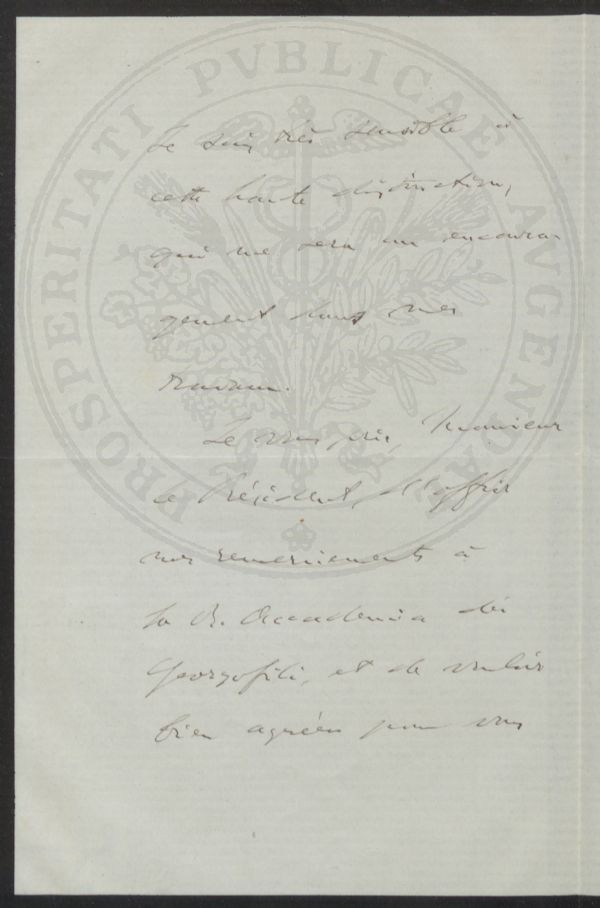 PROSPERITATI PVBLICAE AVGENDAE
Je suis très sensible à
cette haute distinction,
qui me sera un encoura-
gement dans mes
travaux.
Je vous prie, Monsieur
le Président, d'offrir
mes remerciements à
la R. Accademia dei
Georgofili, et de vouloir
bien agréer pour vous